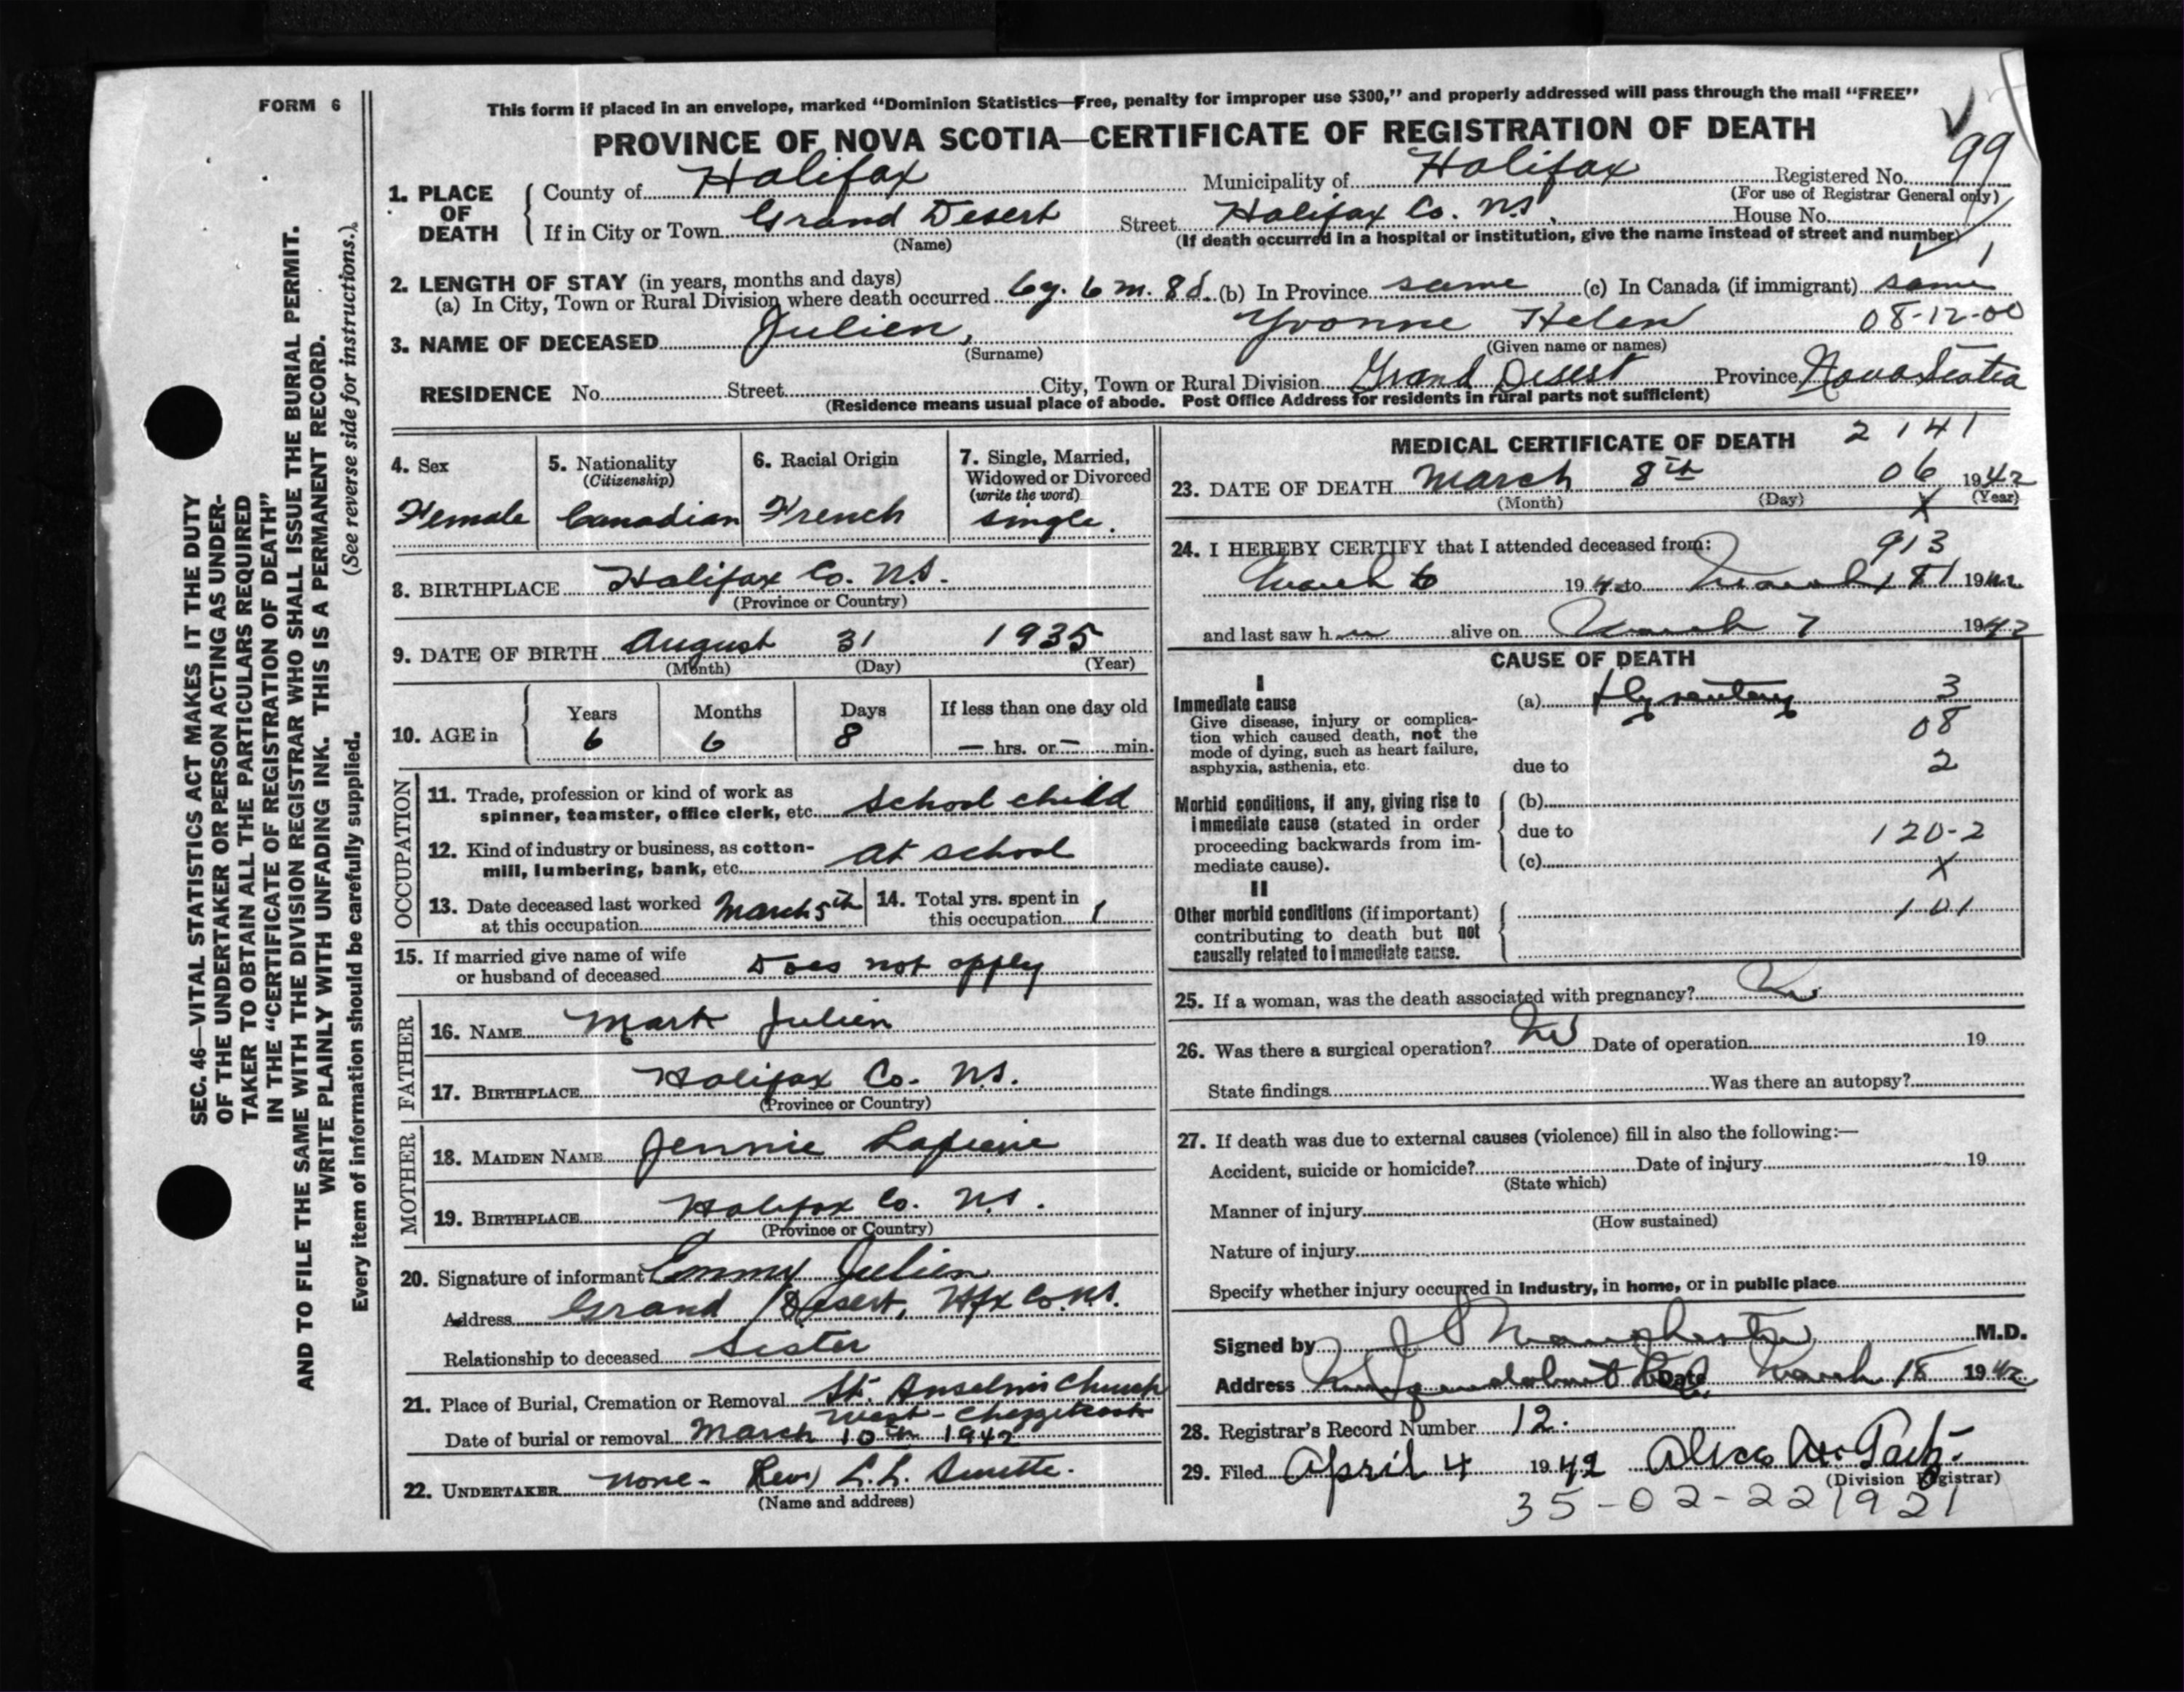 FORM 6
This form if placed in an envelope, marked "Dominion Statistics—Free, penalty for improper use $300," and properly addressed will pass through the mail "FREE"
PROVINCE OF NOVA SCOTIA—CERTIFICATE OF REGISTRATION OF DEATH
99
1. PLACE OF DEATH
County of Halifax Municipality of Halifax Registered No.
(For use of Registrar General only)
If in City or Town Grand Desert Street Halifax Co. N.S. House No.
(Name) (If death occurred in a hospital or institution, give the name instead of street and number)
2. LENGTH OF STAY (in years, months and days)
(a) In City, Town or Rural Division where death occurred 6y. 6 m. 8 d. (b) In Province same (c) In Canada (if immigrant) same
3. NAME OF DECEASED Julien, Yvonne Helen 08-12-00
(Surname) (Given name or names)
RESIDENCE No. Street City, Town or Rural Division Grand Desert Province Nova Scotia
(Residence means usual place of abode. Post Office Address for residents in rural parts not sufficient)
4. Sex
Female
5. Nationality
(Citizenship)
Canadian
6. Racial Origin
French
7. Single, Married,
Widowed or Divorced
(write the word)
single.
8. BIRTHPLACE Halifax Co. N.S.
(Province or Country)
9. DATE OF BIRTH August 31 1935
(Month) (Day) (Year)
10. AGE in
Years Months Days If less than one day old
6 6 8 — hrs. or — min.
OCCUPATION
11. Trade, profession or kind of work as
spinner, teamster, office clerk, etc. School child
12. Kind of industry or business, as cotton-
mill, lumbering, bank, etc. at school
13. Date deceased last worked
at this occupation March 5th
14. Total yrs. spent in
this occupation 1
15. If married give name of wife
or husband of deceased Does not apply
FATHER
16. NAME Mark Julien
17. BIRTHPLACE Halifax Co. N.S.
(Province or Country)
MOTHER
18. MAIDEN NAME Jennie Lapierre
19. BIRTHPLACE Halifax Co. N.S.
(Province or Country)
20. Signature of informant Emmy Julien
Address Grand Desert, Hfx Co. N.S.
Relationship to deceased Sister
21. Place of Burial, Cremation or Removal St. Anselm's Church
West - Chezzetcook
Date of burial or removal March 10th 1942
22. UNDERTAKER None - Rev) L.L. Surette.
(Name and address)
MEDICAL CERTIFICATE OF DEATH 2 141
23. DATE OF DEATH March 8th 06 1942
(Month) (Day) X (Year)
24. I HEREBY CERTIFY that I attended deceased from: 913
March 6 1942 to March 8 1942
and last saw her alive on March 7 1942
CAUSE OF DEATH
I
Immediate cause (a) Dysentery 3
Give disease, injury or complica-
tion which caused death, not the
mode of dying, such as heart failure,
asphyxia, asthenia, etc.
08
due to 2
Morbid conditions, if any, giving rise to
immediate cause (stated in order
proceeding backwards from im-
mediate cause).
(b)
due to 120-2
(c) X
II
Other morbid conditions (if important)
contributing to death but not
causally related to immediate cause.
101
25. If a woman, was the death associated with pregnancy? No
26. Was there a surgical operation? No Date of operation 19
State findings Was there an autopsy?
27. If death was due to external causes (violence) fill in also the following:—
Accident, suicide or homicide? Date of injury 19
(State which)
Manner of injury
(How sustained)
Nature of injury
Specify whether injury occurred in industry, in home, or in public place
Signed by M.D.
Address Date March 18 1942
28. Registrar's Record Number 12.
29. Filed April 4 1942
(Division Registrar)
35-02-221921
SEC. 46—VITAL STATISTICS ACT MAKES IT THE DUTY
OF THE UNDERTAKER OR PERSON ACTING AS UNDER-
TAKER TO OBTAIN ALL THE PARTICULARS REQUIRED
IN THE "CERTIFICATE OF REGISTRATION OF DEATH"
AND TO FILE THE SAME WITH THE DIVISION REGISTRAR WHO SHALL ISSUE THE BURIAL PERMIT.
WRITE PLAINLY WITH UNFADING INK. THIS IS A PERMANENT RECORD.
Every item of information should be carefully supplied. (See reverse side for instructions.)